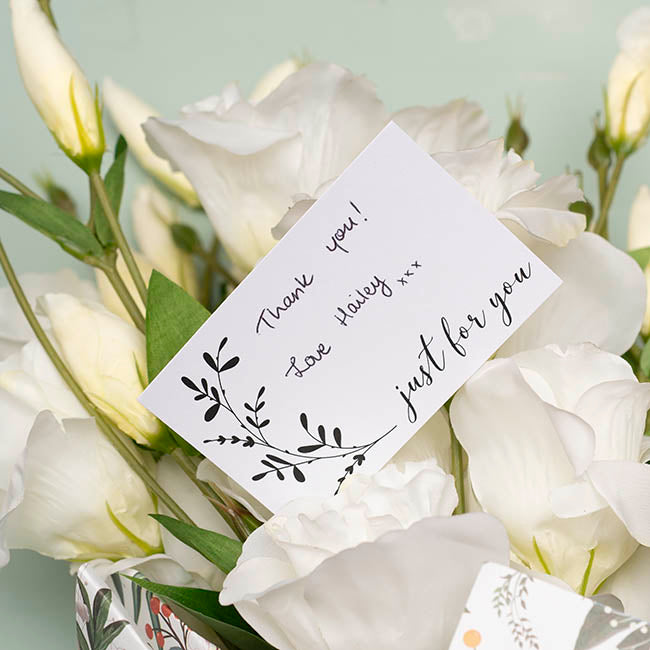 Thank you!
Love Hailey xxx
just for you